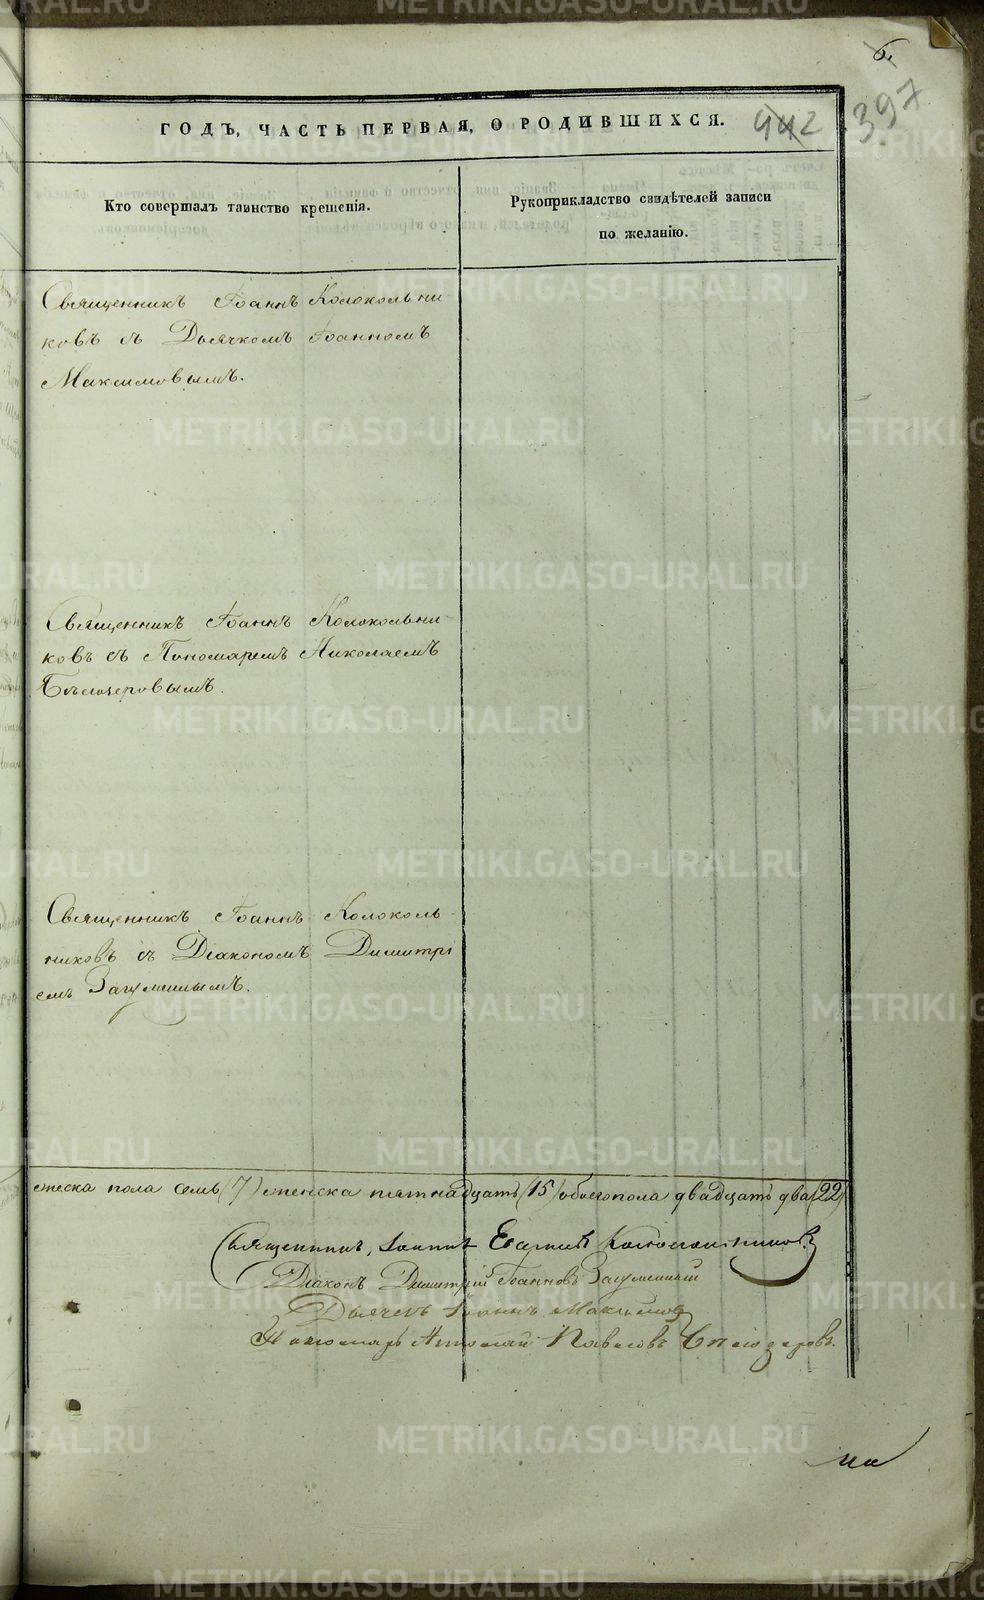 6.
ГОДЪ, ЧАСТЬ ПЕРВАЯ, О РОДИВШИХСЯ.
442
397
Кто совершалъ таинство крещенія.
Рукоприкладство свидѣтелей записи
по желанію.
Священникъ Іоаннъ Колокольни
ковъ съ Дьячкомъ Іоанномъ
Максимовымъ.
Священникъ Іоаннъ Колокольни-
ковъ съ Пономаремъ Николаемъ
Бѣлозеровымъ.
Священникъ Іоаннъ Колоколь-
никовъ съ Діакономъ Димитрі
емъ Загуменнымъ.
жеска пола семь (7) женска пятнадцать (15) обоего пола двадцать два (22)
Священникъ, Іоаннъ Колокольниковъ
Діаконъ Димитрій Іоанновъ Загуменный
Дьячекъ Іоаннъ Максимовъ
Пономарь Николай Павловъ Бѣлозеровъ.
METRIKI.GASO-URAL.RU